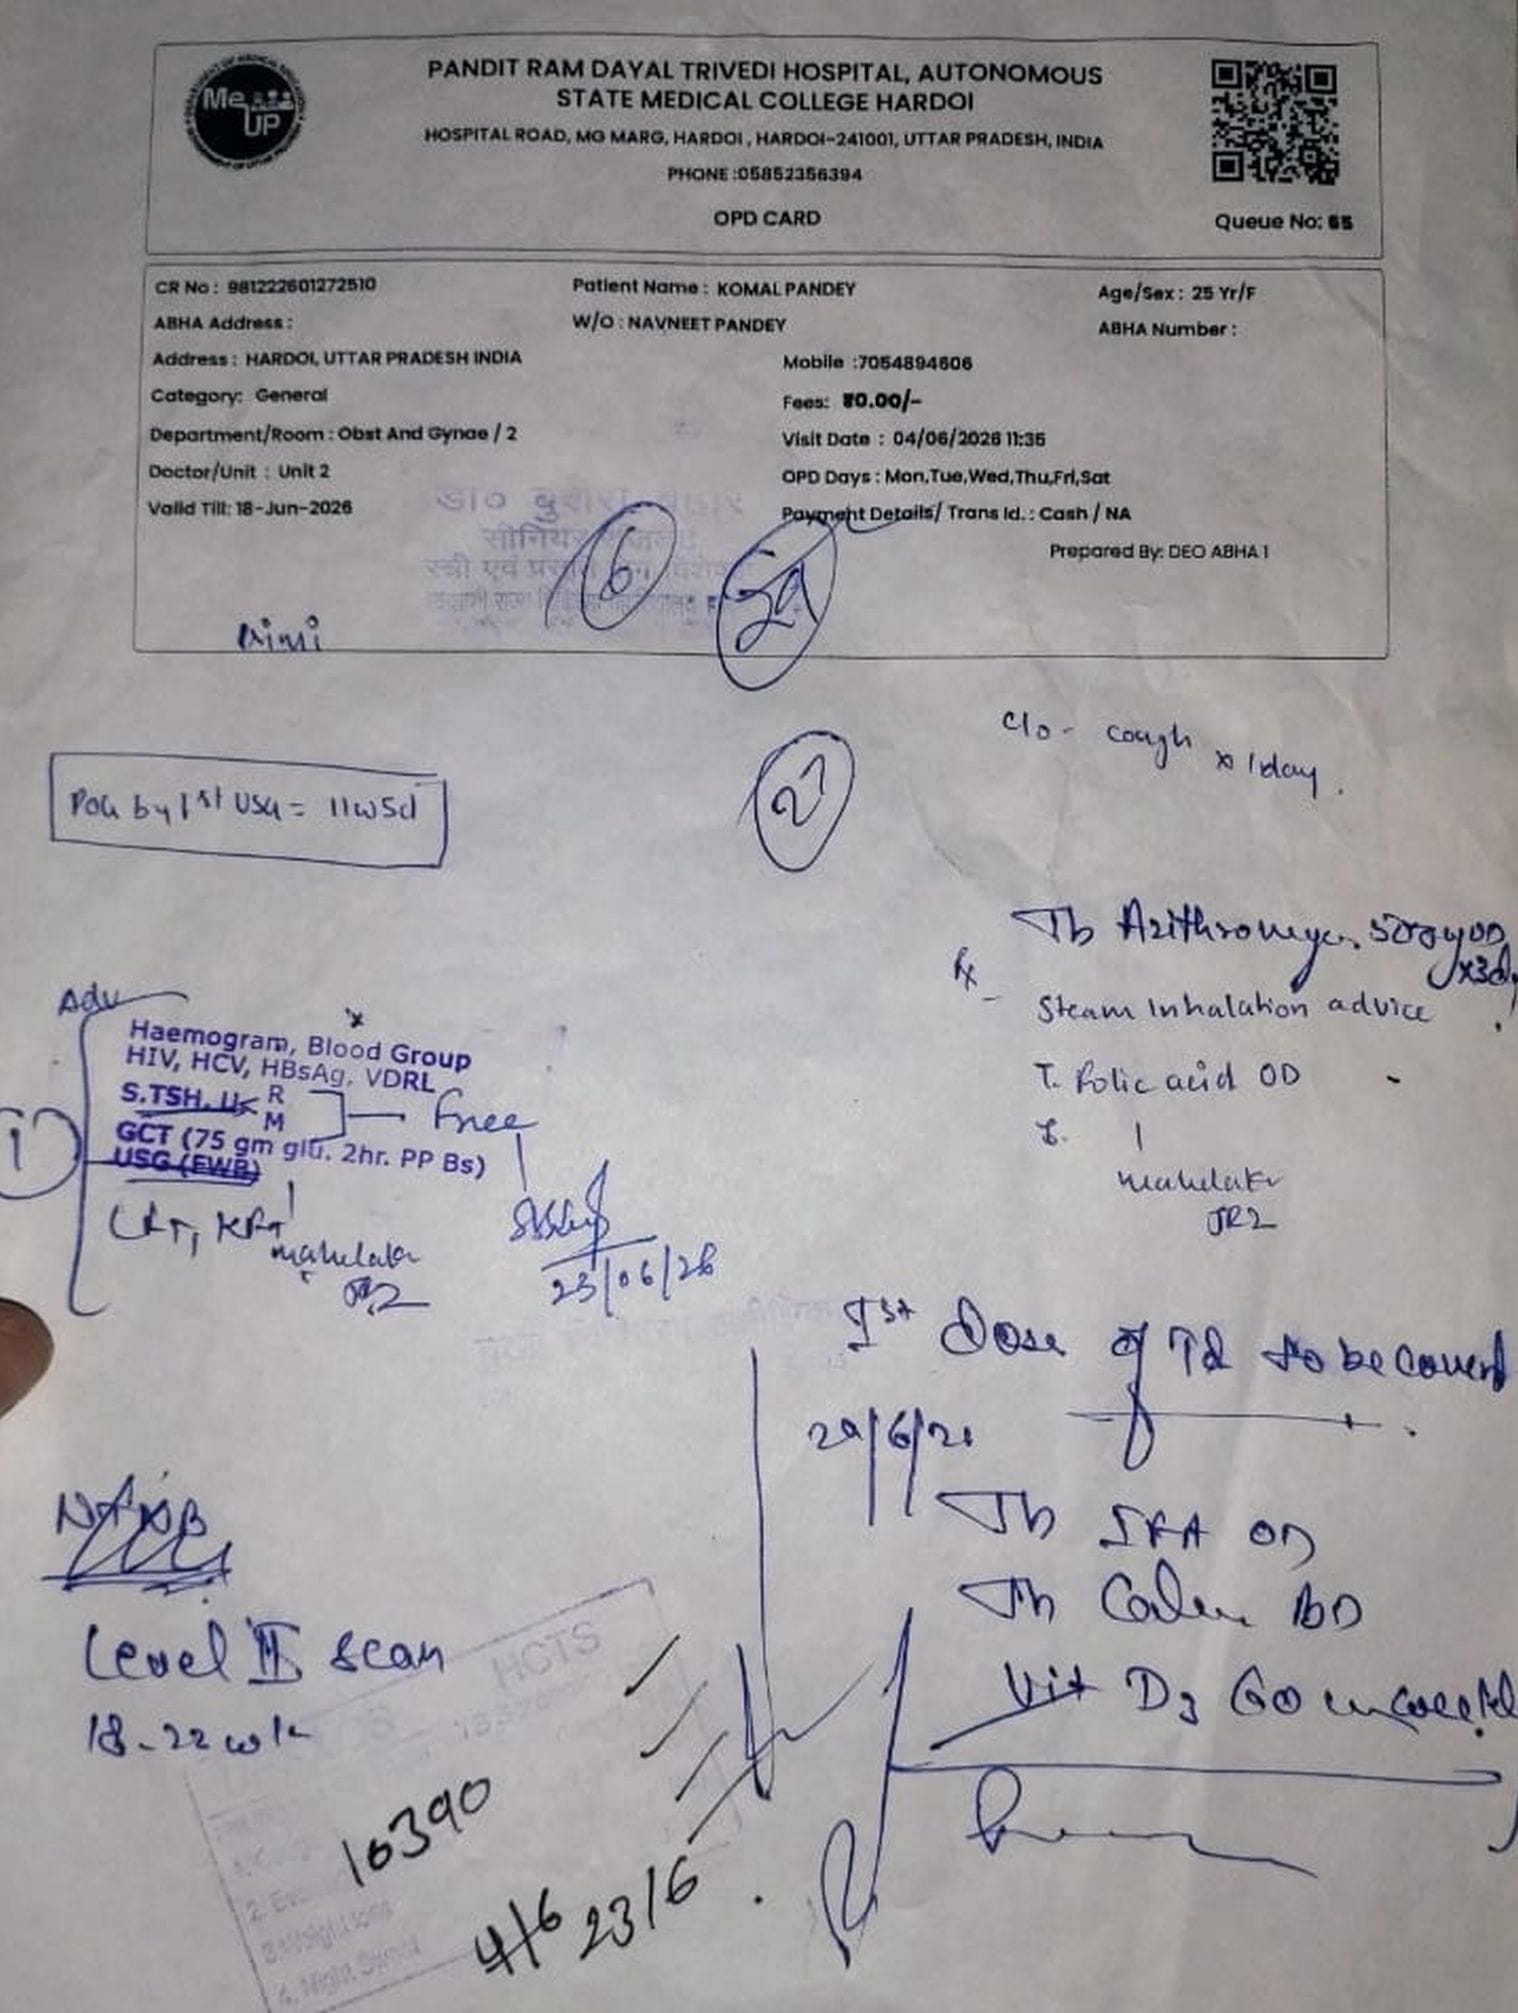 Me UP
PANDIT RAM DAYAL TRIVEDI HOSPITAL, AUTONOMOUS
STATE MEDICAL COLLEGE HARDOI
HOSPITAL ROAD, MG MARG, HARDOI , HARDOI-241001, UTTAR PRADESH, INDIA
PHONE :05852356394
OPD CARD
Queue No: 65
CR No : 981222601272510
Patient Name : KOMAL PANDEY
Age/Sex : 25 Yr/F
ABHA Address :
W/O : NAVNEET PANDEY
ABHA Number :
Address : HARDOI, UTTAR PRADESH INDIA
Mobile :7054894606
Category: General
Fees: ₹0.00/-
Department/Room : Obst And Gynae / 2
Visit Date : 04/06/2026 11:35
Doctor/Unit : Unit 2
OPD Days : Mon,Tue,Wed,Thu,Fri,Sat
Valid Till: 18-Jun-2026
Payment Details/ Trans Id. : Cash / NA
Prepared By: DEO ABHA 1
डा०
स्त्री एवं
6
c/o - cough x 1day.
27
POG by 1st USG = 11w5d
Tb Azithromycin 500mg OD x3d
Rx
Steam Inhalation advice
T. Folic acid OD
JR2
Adv
Haemogram, Blood Group
HIV, HCV, HBsAg, VDRL
S.TSH, U< R M
Free
GCT (75 gm glu. 2hr. PP Bs)
USG (FWB)
1
LFT, KFT
JR2
23/06/26
Ist Dose of Td to be covered
29/6/26
Tb IFA OD
Tb BD
Vit D3 60
Level II scan
18-22 wk
HCTS
10390
4/6 23/6